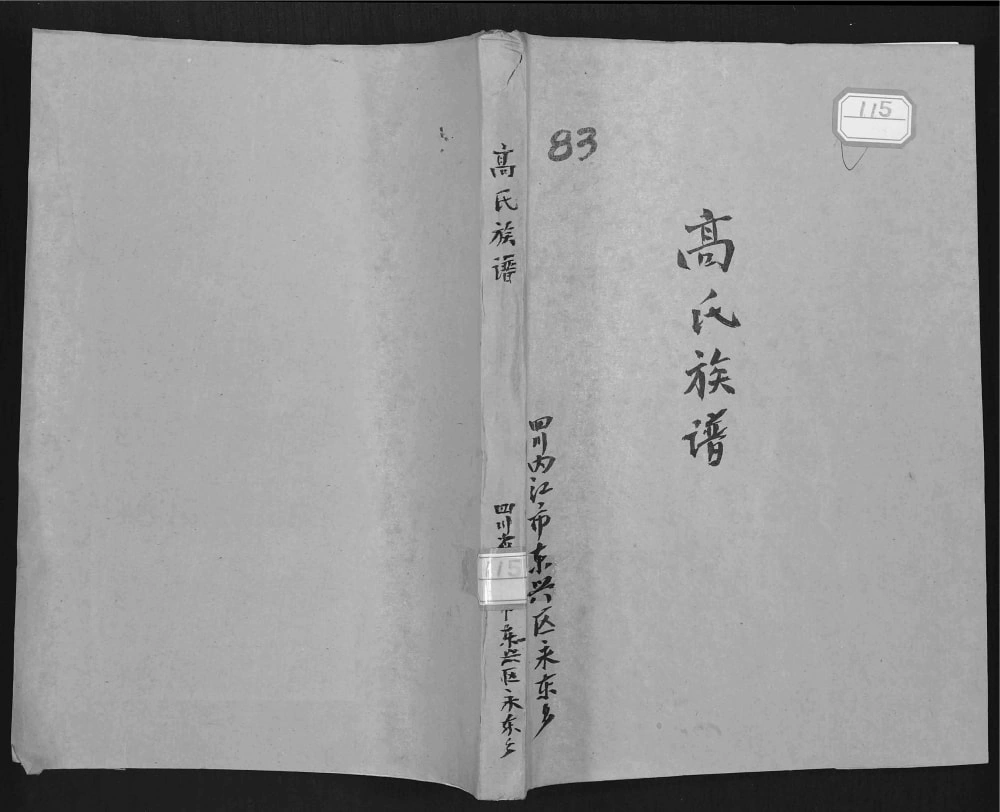 115
83
高氏族谱
四川内江市东兴区永东乡
高氏族谱
四川省
115
市东兴区永东乡